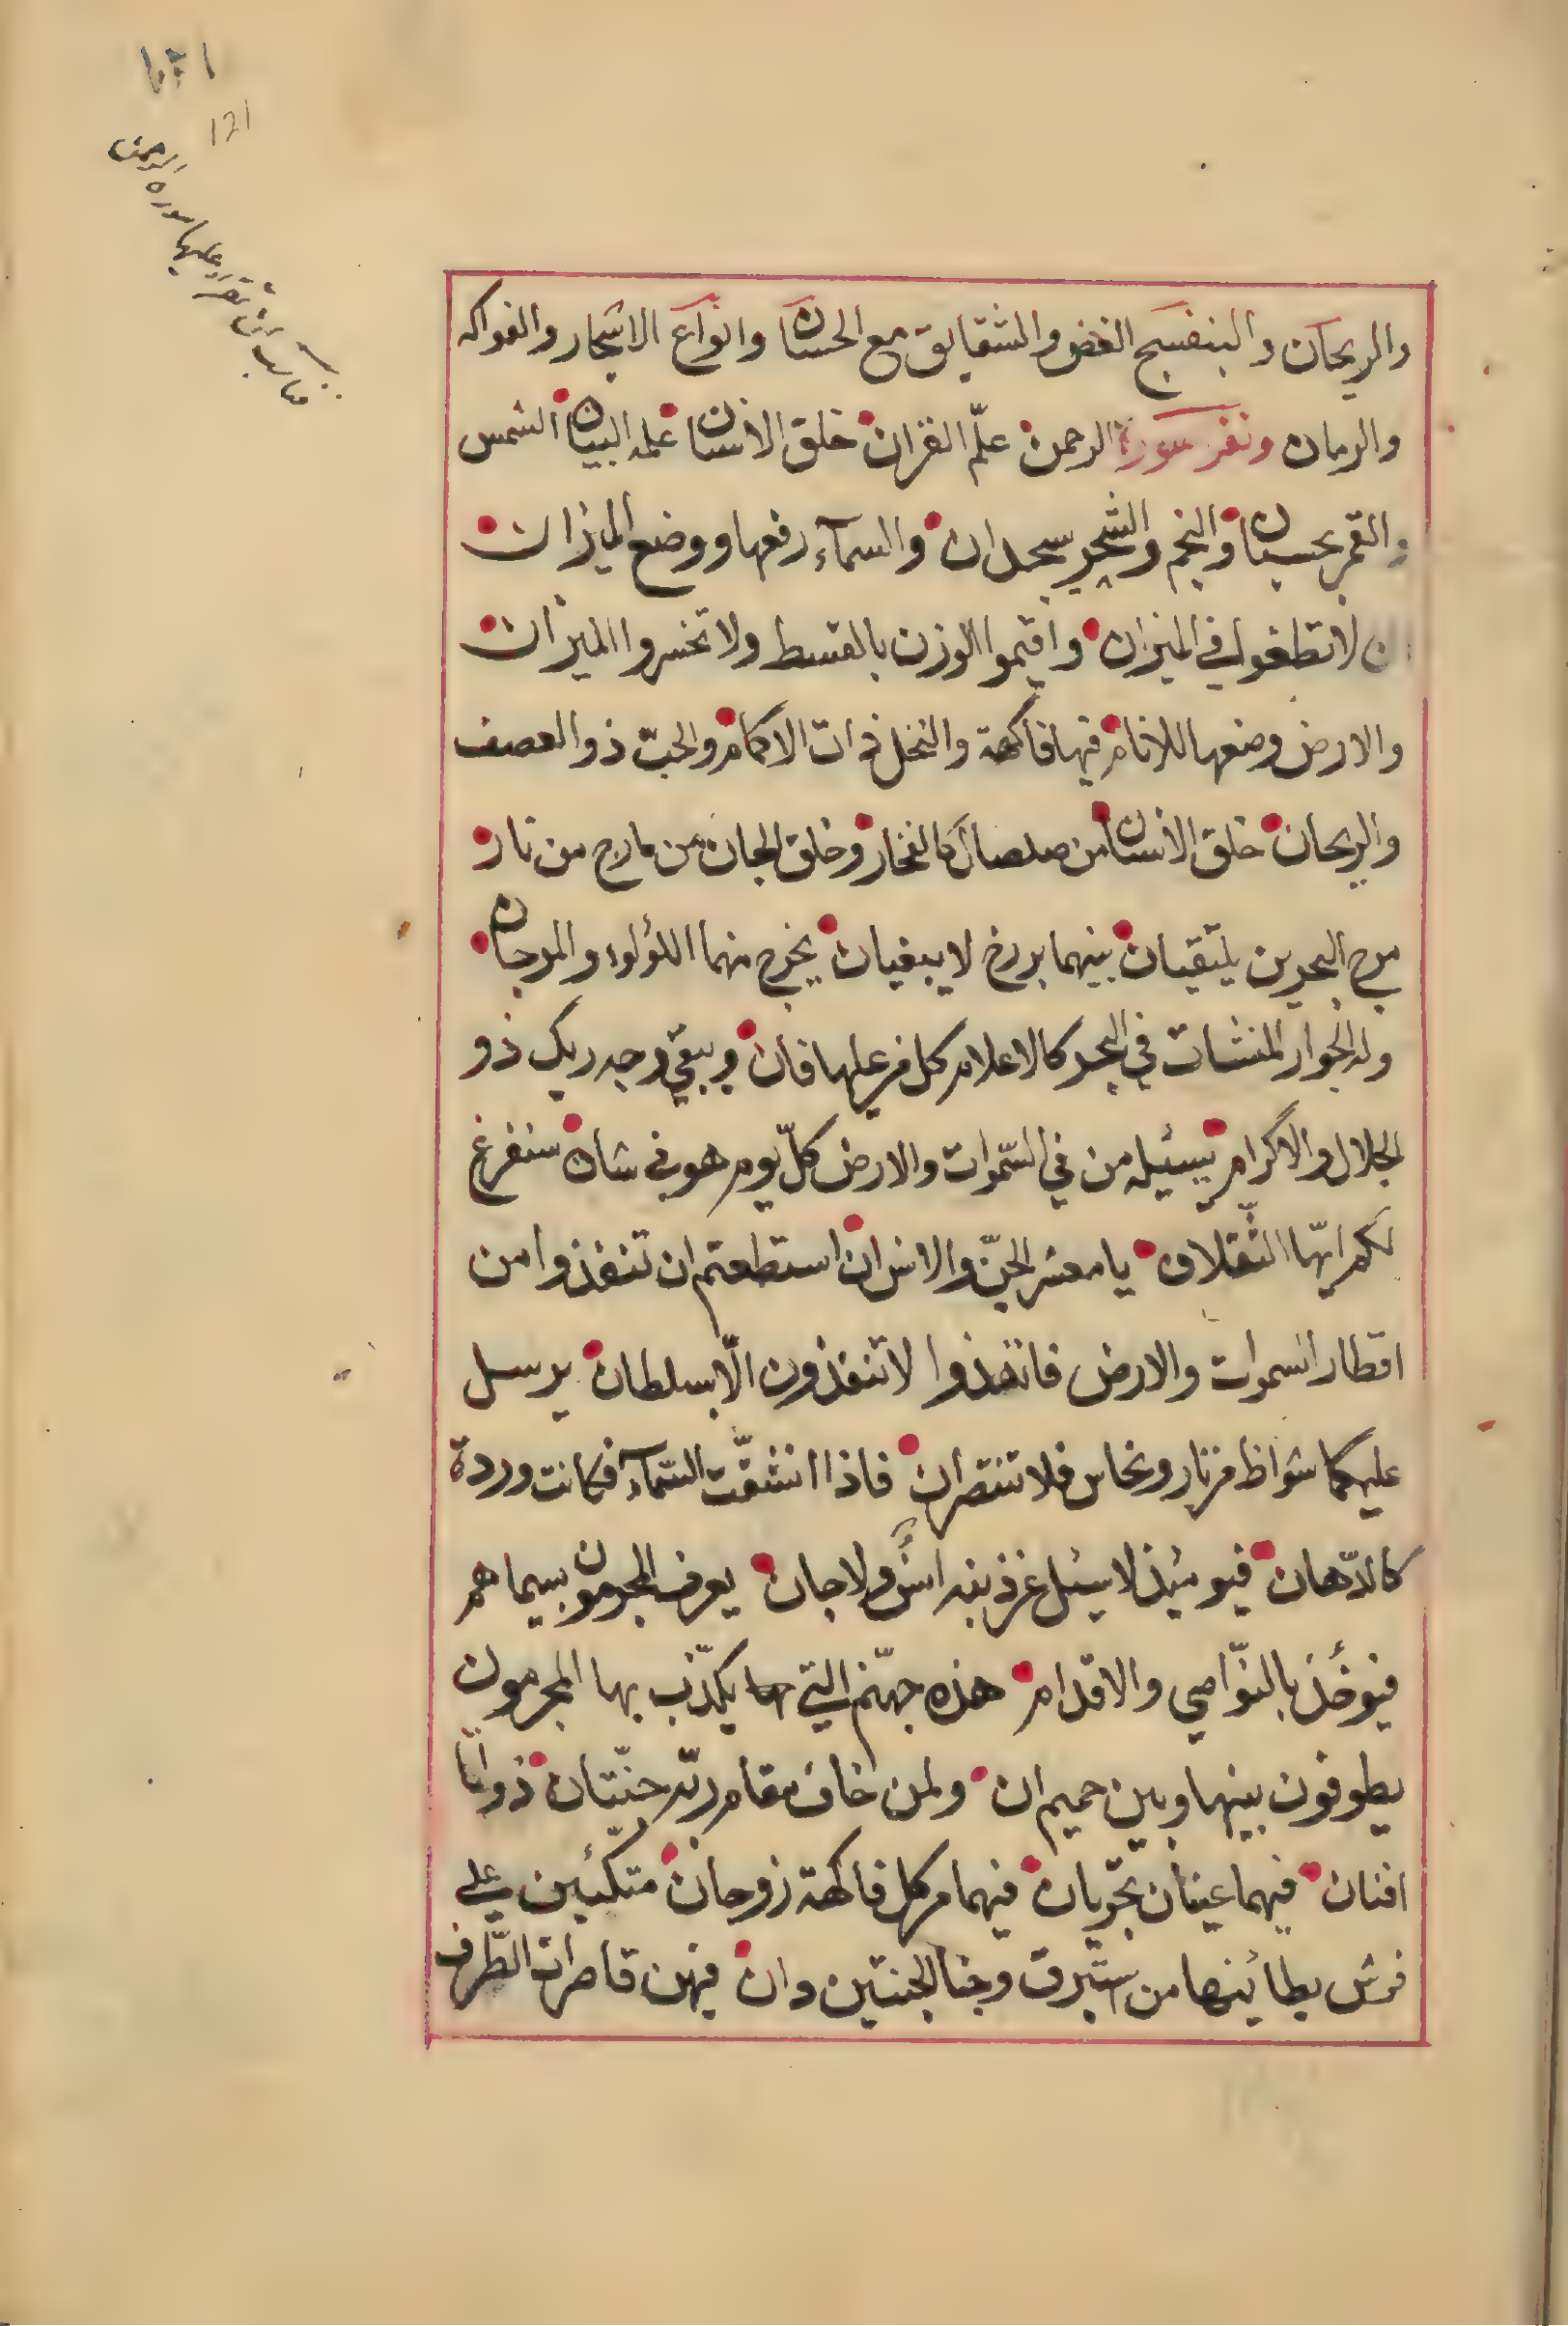 121
والريحان والبنفسج الغض والشقايق مع الحسان وانواع الاشجار والفواكه
والرمان ونقر سورة الرحمن علّم القران خلق الانسان علمه البيان الشمس
والقمر بحسبان والنجم والشجر يسجدان والسمآء رفعها ووضع الميزان
ان لاتطغوا في الميزان واقيموا الوزن بالقسط ولا تخسروا الميزان
والارض وضعها للانام فيها فاكهة والنخل ذات الاكمام والحبّ ذو العصف
والريحان خلق الانسان من صلصال كالفخار وخلق الجان من مارج من نار
مرج البحرين يلتقيان بينهما برزخ لا يبغيان يخرج منهما اللؤلوء والمرجان
وله الجوار المنشات في البحر كالاعلام كل من عليها فان ويبقي وجه ربك ذو
الجلال والاكرام يسئله من في السّموات والارض كلّ يوم هو في شان سنفرغ
لكم ايّها الثّقلان يا معشر الجنّ والانس ان استطعتم ان تنفذوا من
اقطار السموات والارض فانفذوا لا تنفذون الّا بسلطان يرسل
عليكما شواظ من نار ونحاس فلا تنتصران فاذا انشقّت السّمآء فكانت وردة
كالدّهان فيومئذ لا يسئل عن ذنبه انسٌ ولا جان يعرف المجرمون بسيماهم
فيوخذ بالنّواصي والاقدام هذه جهنّم الّتي يكذّب بها المجرمون
يطوفون بينها وبين حميم ان ولمن خاف مقام ربّه جنّتان ذواتا
افنان فيهما عينان تجريان فيهما من كل فاكهة زوجان متكئين علي
فرش بطائنها من استبرق وجنا الجنتين دان فيهن قاصرات الطّرف